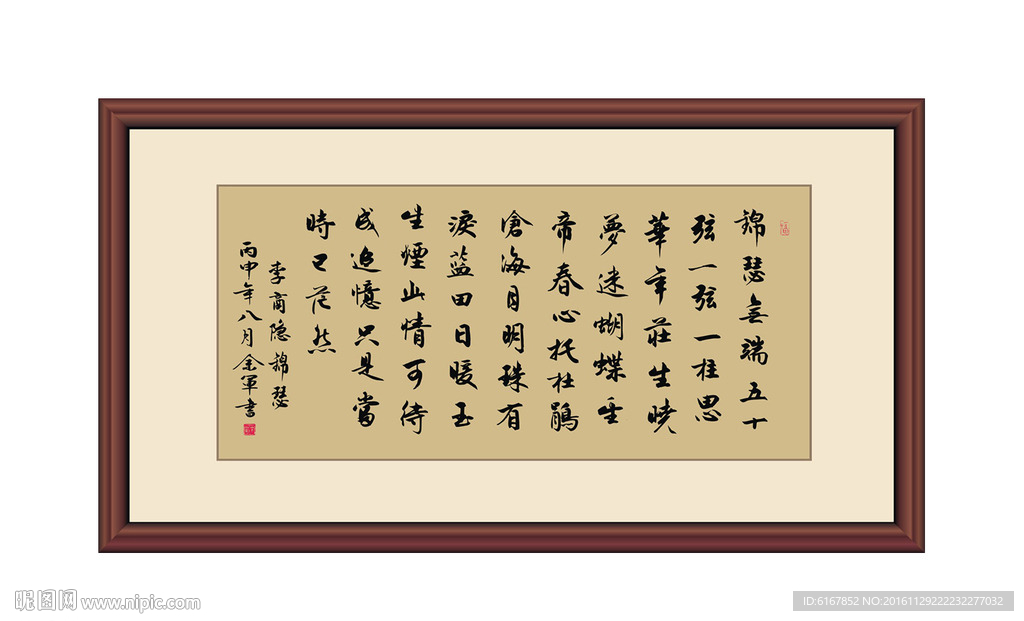 錦瑟無端五十
弦一弦一柱思
華年莊生曉
夢迷蝴蝶望
帝春心托杜鵑
滄海月明珠有
淚藍田日暖玉
生煙此情可待
成追憶只是當
時已茫然
李商隐錦瑟
丙申年八月金軍書
昵图网 www.nipic.com
ID:6167852 NO:20161129222232277032